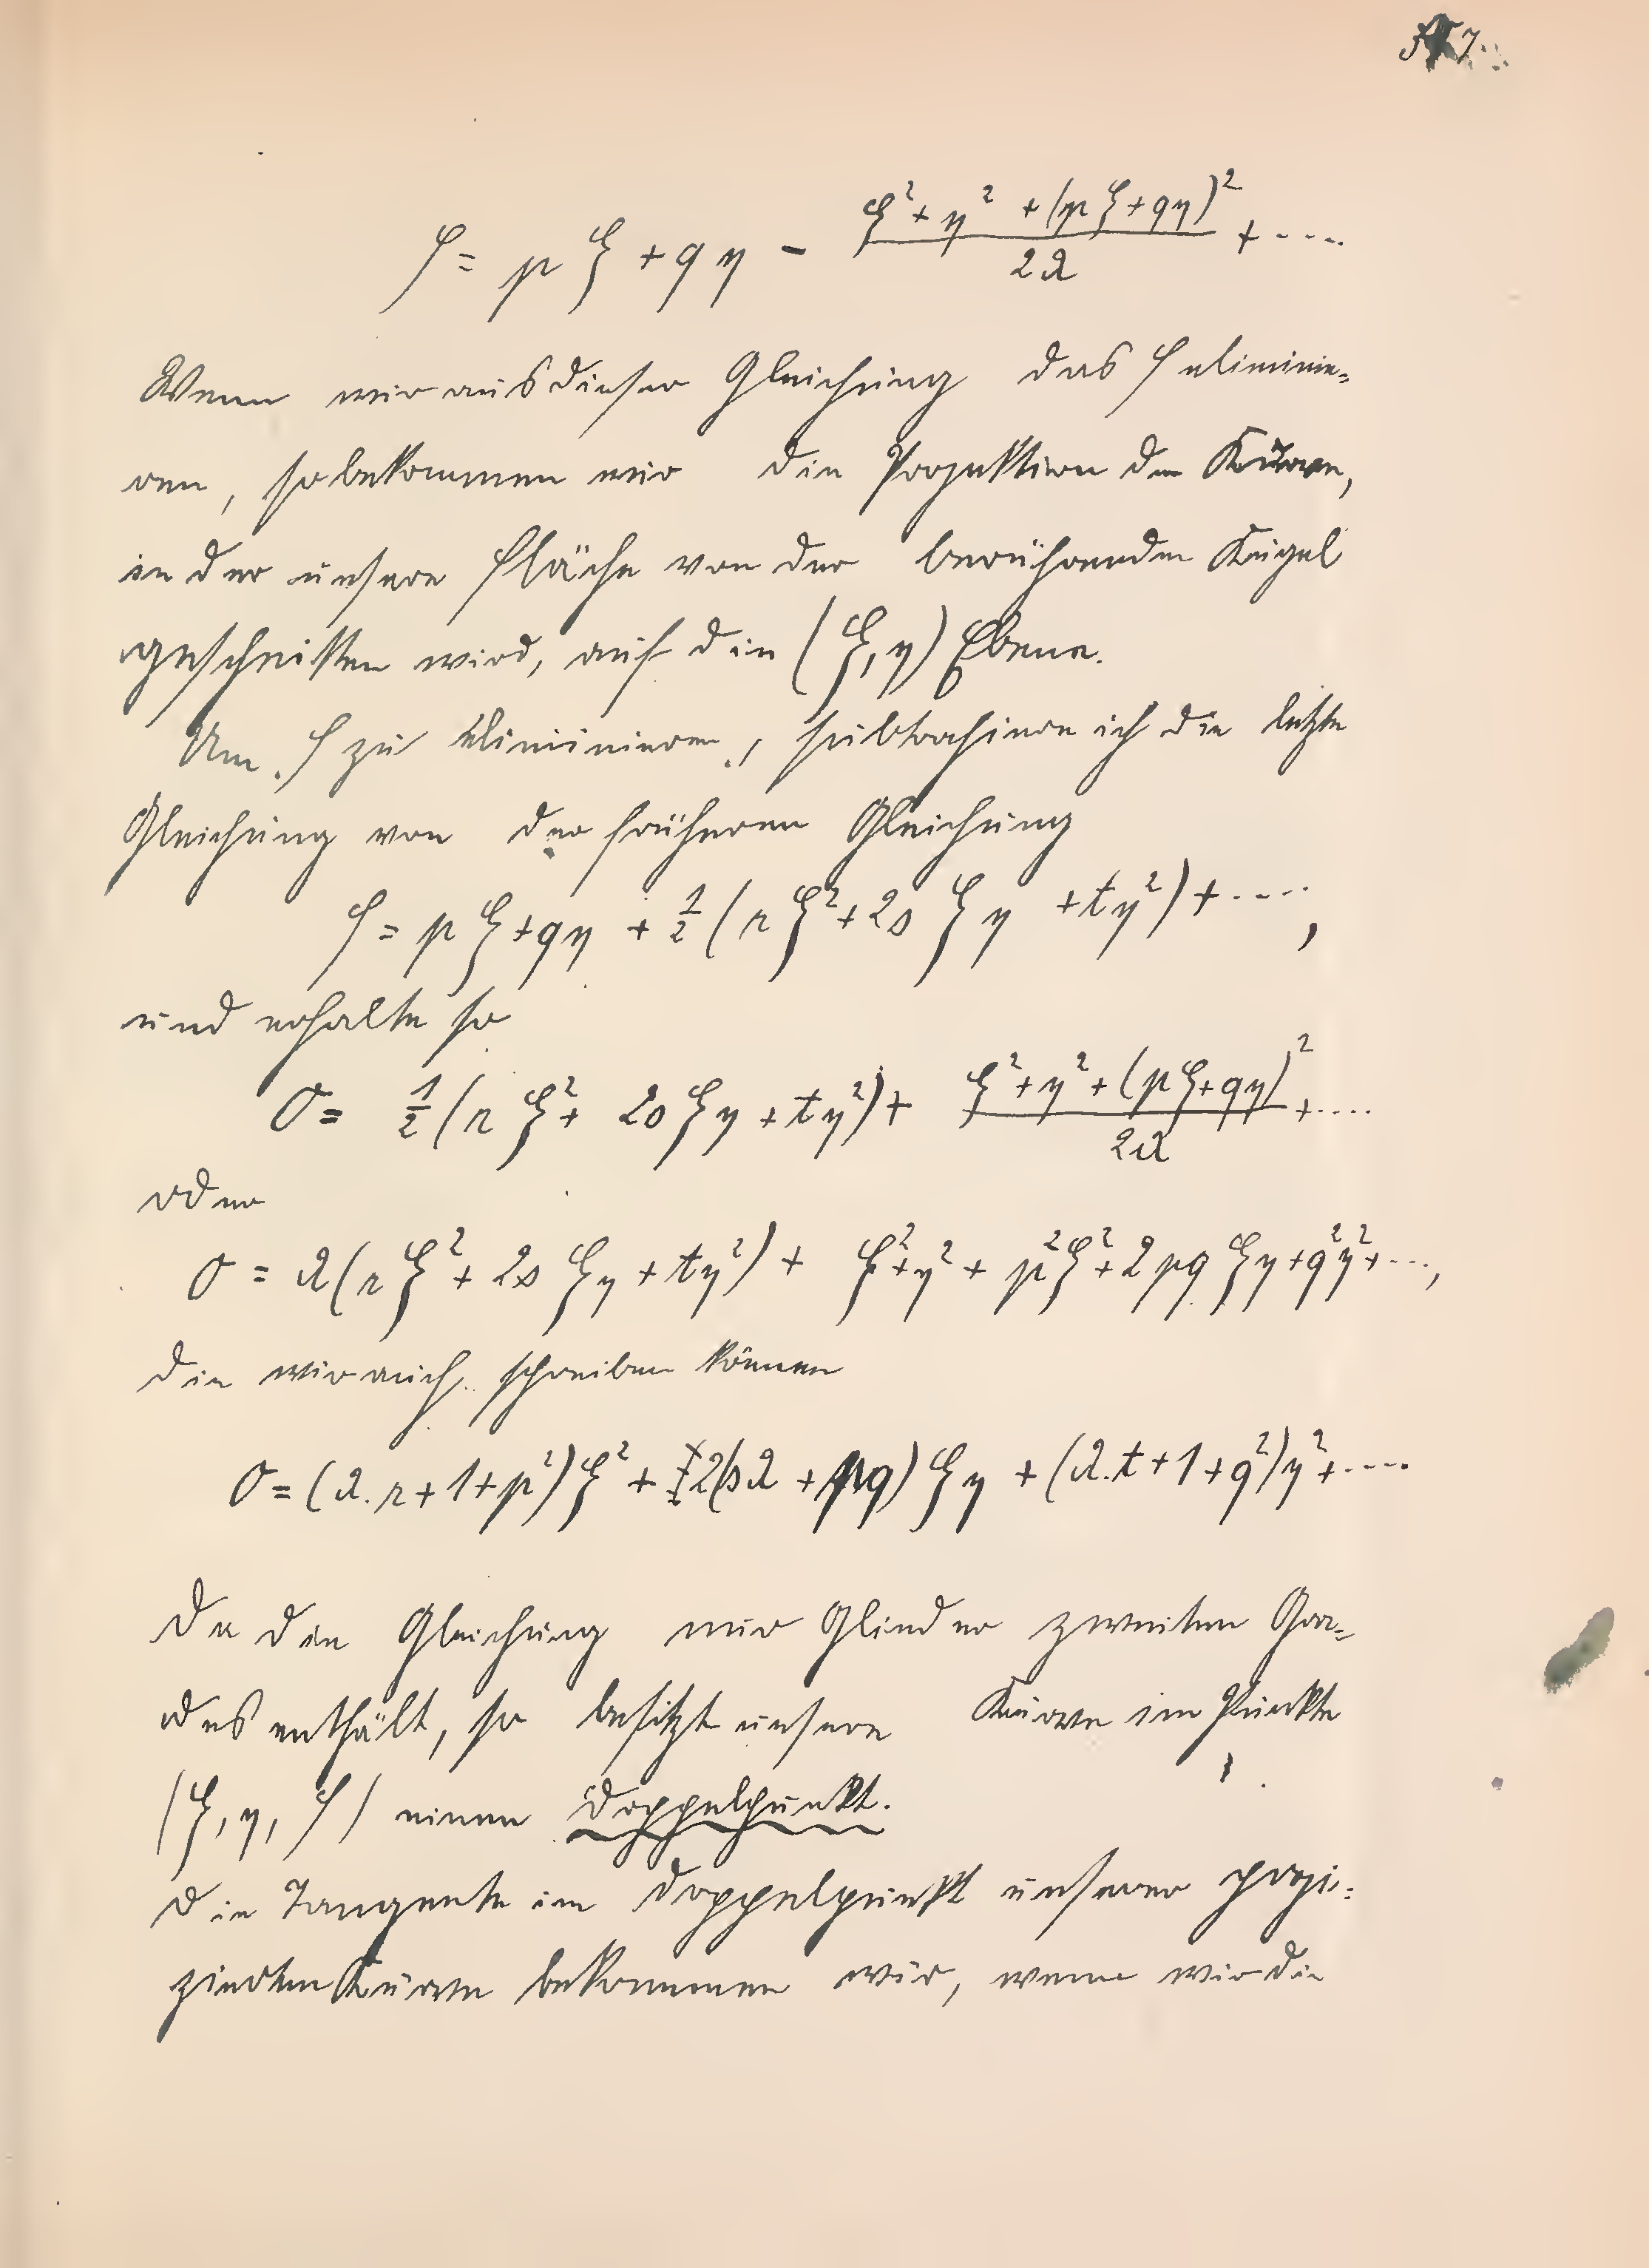 ζ = p ξ + q η - (ξ² + η² + (p ξ + q η)²) / 2λ + ....
Wenn wir aus dieser Gleichung das ζ eliminie=
ren, so bekommen wir die Projektion der Kurve,
in der unsere Fläche von der berührenden Kugel
geschnitten wird, auf die (ξ, η) Ebene.
Um ζ zu eliminieren, subtrahiere ich die letzte
Gleichung von der früheren Gleichung
ζ = p ξ + q η + 1/2 (r ξ² + 2s ξ η + t η²) + ....,
und erhalte so
0 = 1/2 (r ξ² + 2s ξ η + t η²) + (ξ² + η² + (p ξ + q η)²) / 2λ + ....
oder
0 = λ (r ξ² + 2s ξ η + t η²) + ξ² + η² + p² ξ² + 2 p q ξ η + q² η² + ...,
die wir auch schreiben können
0 = (λ. r + 1 + p²) ξ² + 2 (s λ + p q) ξ η + (λ. t + 1 + q²) η² + ....
Da die Gleichung nur Glieder zweiten Gra=
des enthält, so besitzt unsere Kurve im Punkte
(ξ, η, ζ) einen Doppelpunkt.
Die Tangente im Doppelpunkt unserer proji=
zierten Kurve bekommen wir, wenn wir die